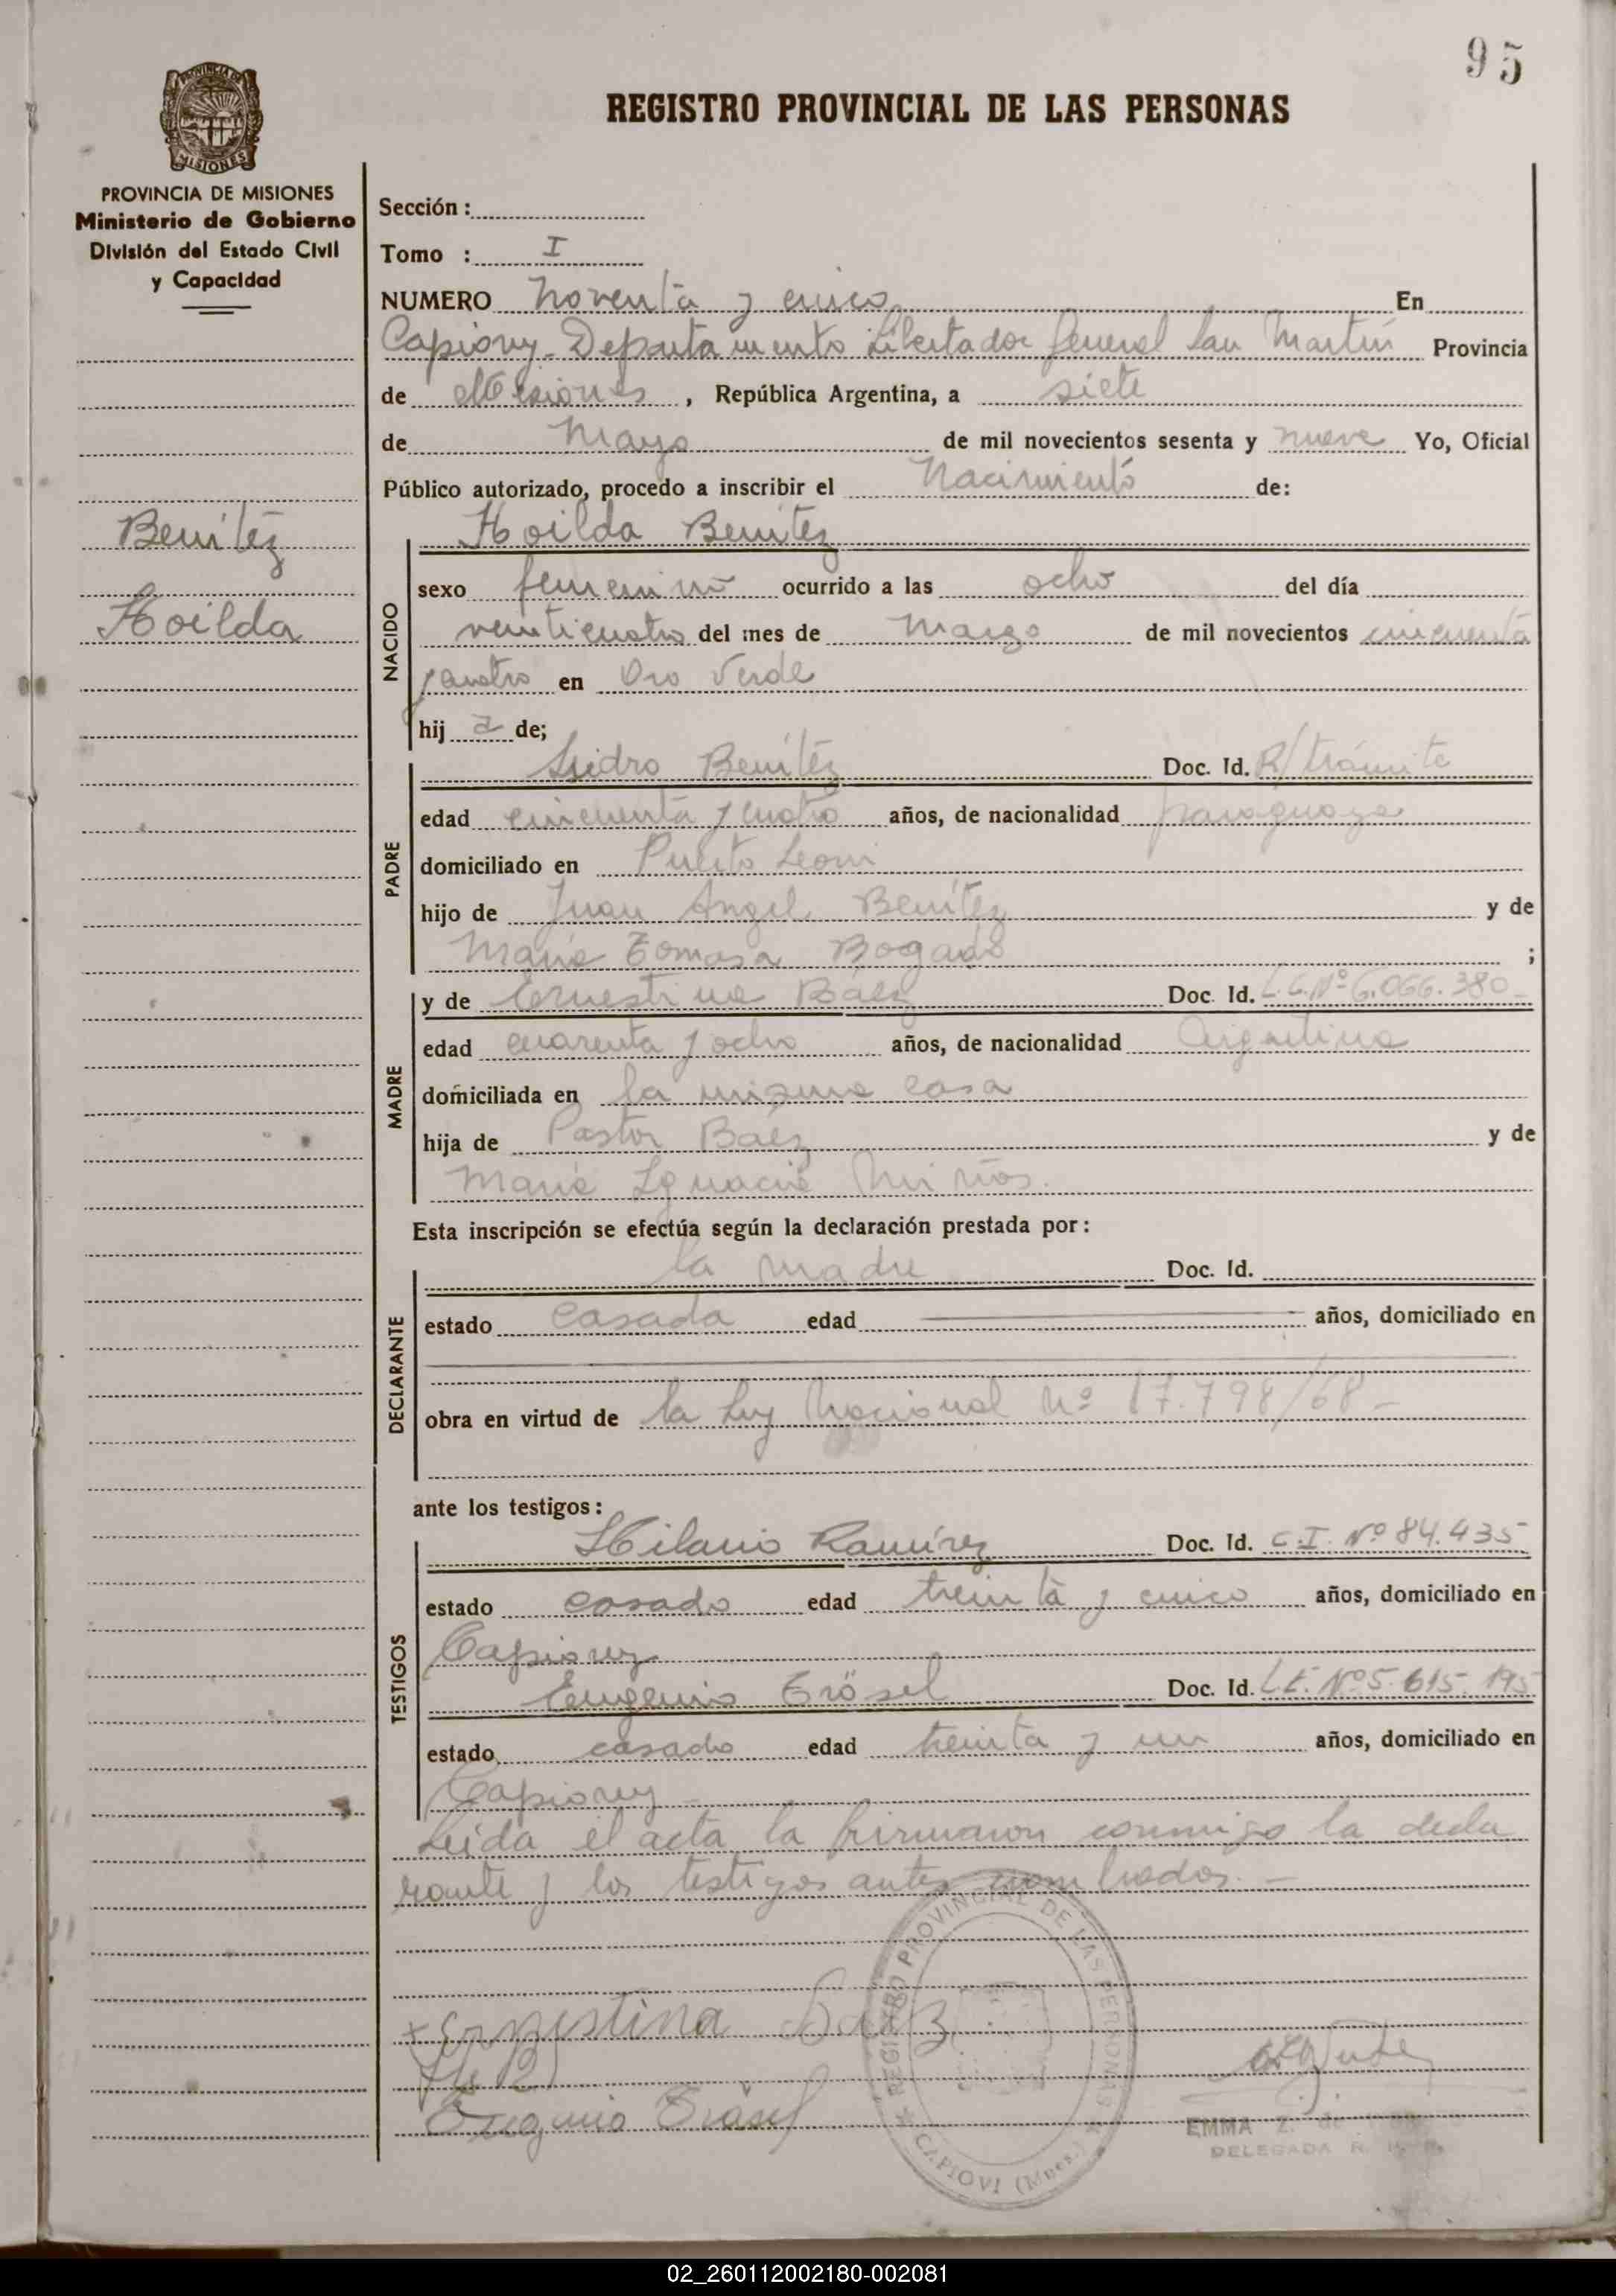 95
REGISTRO PROVINCIAL DE LAS PERSONAS
PROVINCIA DE MISIONES
Ministerio de Gobierno
División del Estado Civil
y Capacidad
Benítez
Hoilda
Sección :
Tomo : I
NUMERO Noventa y cinco En
Capiovy - Departamento Libertador General San Martín Provincia
de Misiones , República Argentina, a siete
de Mayo de mil novecientos sesenta y nueve Yo, Oficial
Público autorizado, procedo a inscribir el Nacimiento de:
Hoilda Benítez
NACIDO
sexo femenino ocurrido a las ocho del día
veinticuatro del mes de Marzo de mil novecientos cincuenta
y cuatro en Oro Verde
hij a de;
PADRE
Isidro Benítez Doc. Id. R/trámite
edad cincuenta y cuatro años, de nacionalidad paraguaya
domiciliado en Puerto Leoni
hijo de Juan Angel Benítez y de
María Tomasa Bogado ;
MADRE
y de Ernestina Báez Doc. Id. L.C. Nº 6.066.380 -
edad cuarenta y ocho años, de nacionalidad Argentina
domiciliada en la misma casa
hija de Pastor Báez y de
María Ignacia
Esta inscripción se efectúa según la declaración prestada por :
DECLARANTE
la madre Doc. Id.
estado casada edad años, domiciliado en
obra en virtud de la Ley Nacional Nº 17.798/68 -
ante los testigos :
TESTIGOS
Hilario Ramírez Doc. Id. C.I. Nº 84.435
estado casado edad treinta y cinco años, domiciliado en
Capiovy
Eugenio Brösel Doc. Id. L.E. Nº 5.615.195
estado casado edad treinta y un años, domiciliado en
Capiovy -
Leída el acta la firmaron conmigo la decla
rante y los testigos antes nombrados. -
REGISTRO PROVINCIAL DE LAS PERSONAS
CAPIOVI (Mnes.)
x Ernestina Baez
Eugenio Brösel
EMMA Z. de
DELEGADA R. P. P.
02_260112002180-002081